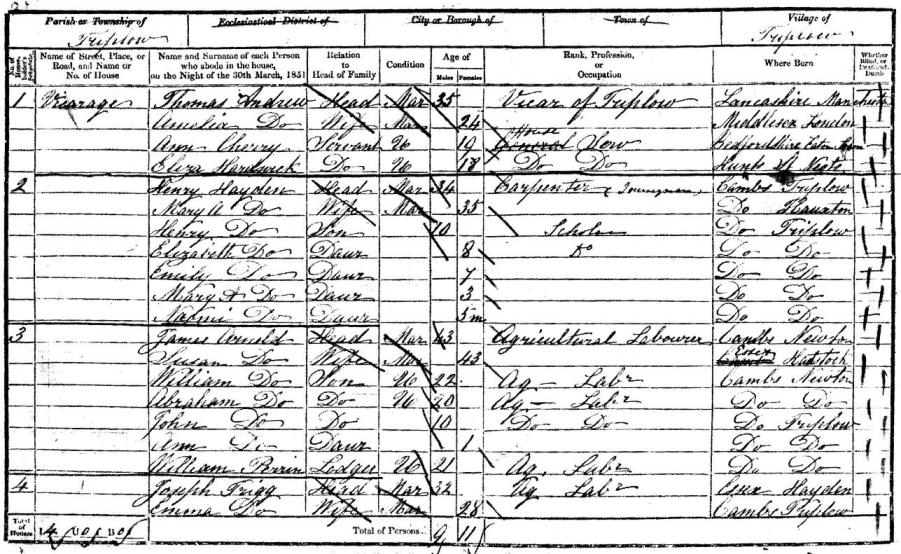 Parish or Township of Ecclesiastical District of City or Borough of Town of Village of
Triplow Triplow
No. of House Name of Street, Place, or Road, and Name or No. of House Name and Surname of each Person who abode in the house, on the Night of the 30th March, 1851 Relation to Head of Family Condition Age of Males Females Rank, Profession, or Occupation Where Born Whether Blind, or Deaf-and-Dumb
1 Vicarage Thomas Andrew Head Mar 35 Vicar of Triplow Lancashire Manchester
Amelia Do Wife Mar 24 Middlesex London
Ann Cherry Servant U 19 General House Serv Bedfordshire Eaton
Eliza Hardwick Do U 18 Do Do Hunts St Neots
2 Henry Hayden Head Mar 34 Carpenter (Journeyman) Cambs Triplow
Mary A Do Wife Mar 35 Do Hauxton
Henry Do Son 10 Scholar Do Triplow
Elizabeth Do Daur 8 Do Do Do
Emily Do Daur 7 Do Do
Mary A Do Daur 3 Do Do
Naomi Do Daur 5m Do Do
3 James Arnold Head Mar 43 Agricultural Labourer Cambs Newton
Susan Do Wife Mar 43 Essex Hadstock
William Do Son U 22 Ag Labr Cambs Newton
Abraham Do Do U 20 Ag Labr Do Do
John Do Do 10 Do Do Do Triplow
Ann Do Daur 1 Do Do
William Perrin Lodger U 21 Ag. Labr Do Do
4 Joseph Trigg Head Mar 32 Ag Labr Essex Hayden
Emma Do Wife Mar 28 Cambs Triplow
Total of Houses 4 U B Total of Persons 9 11